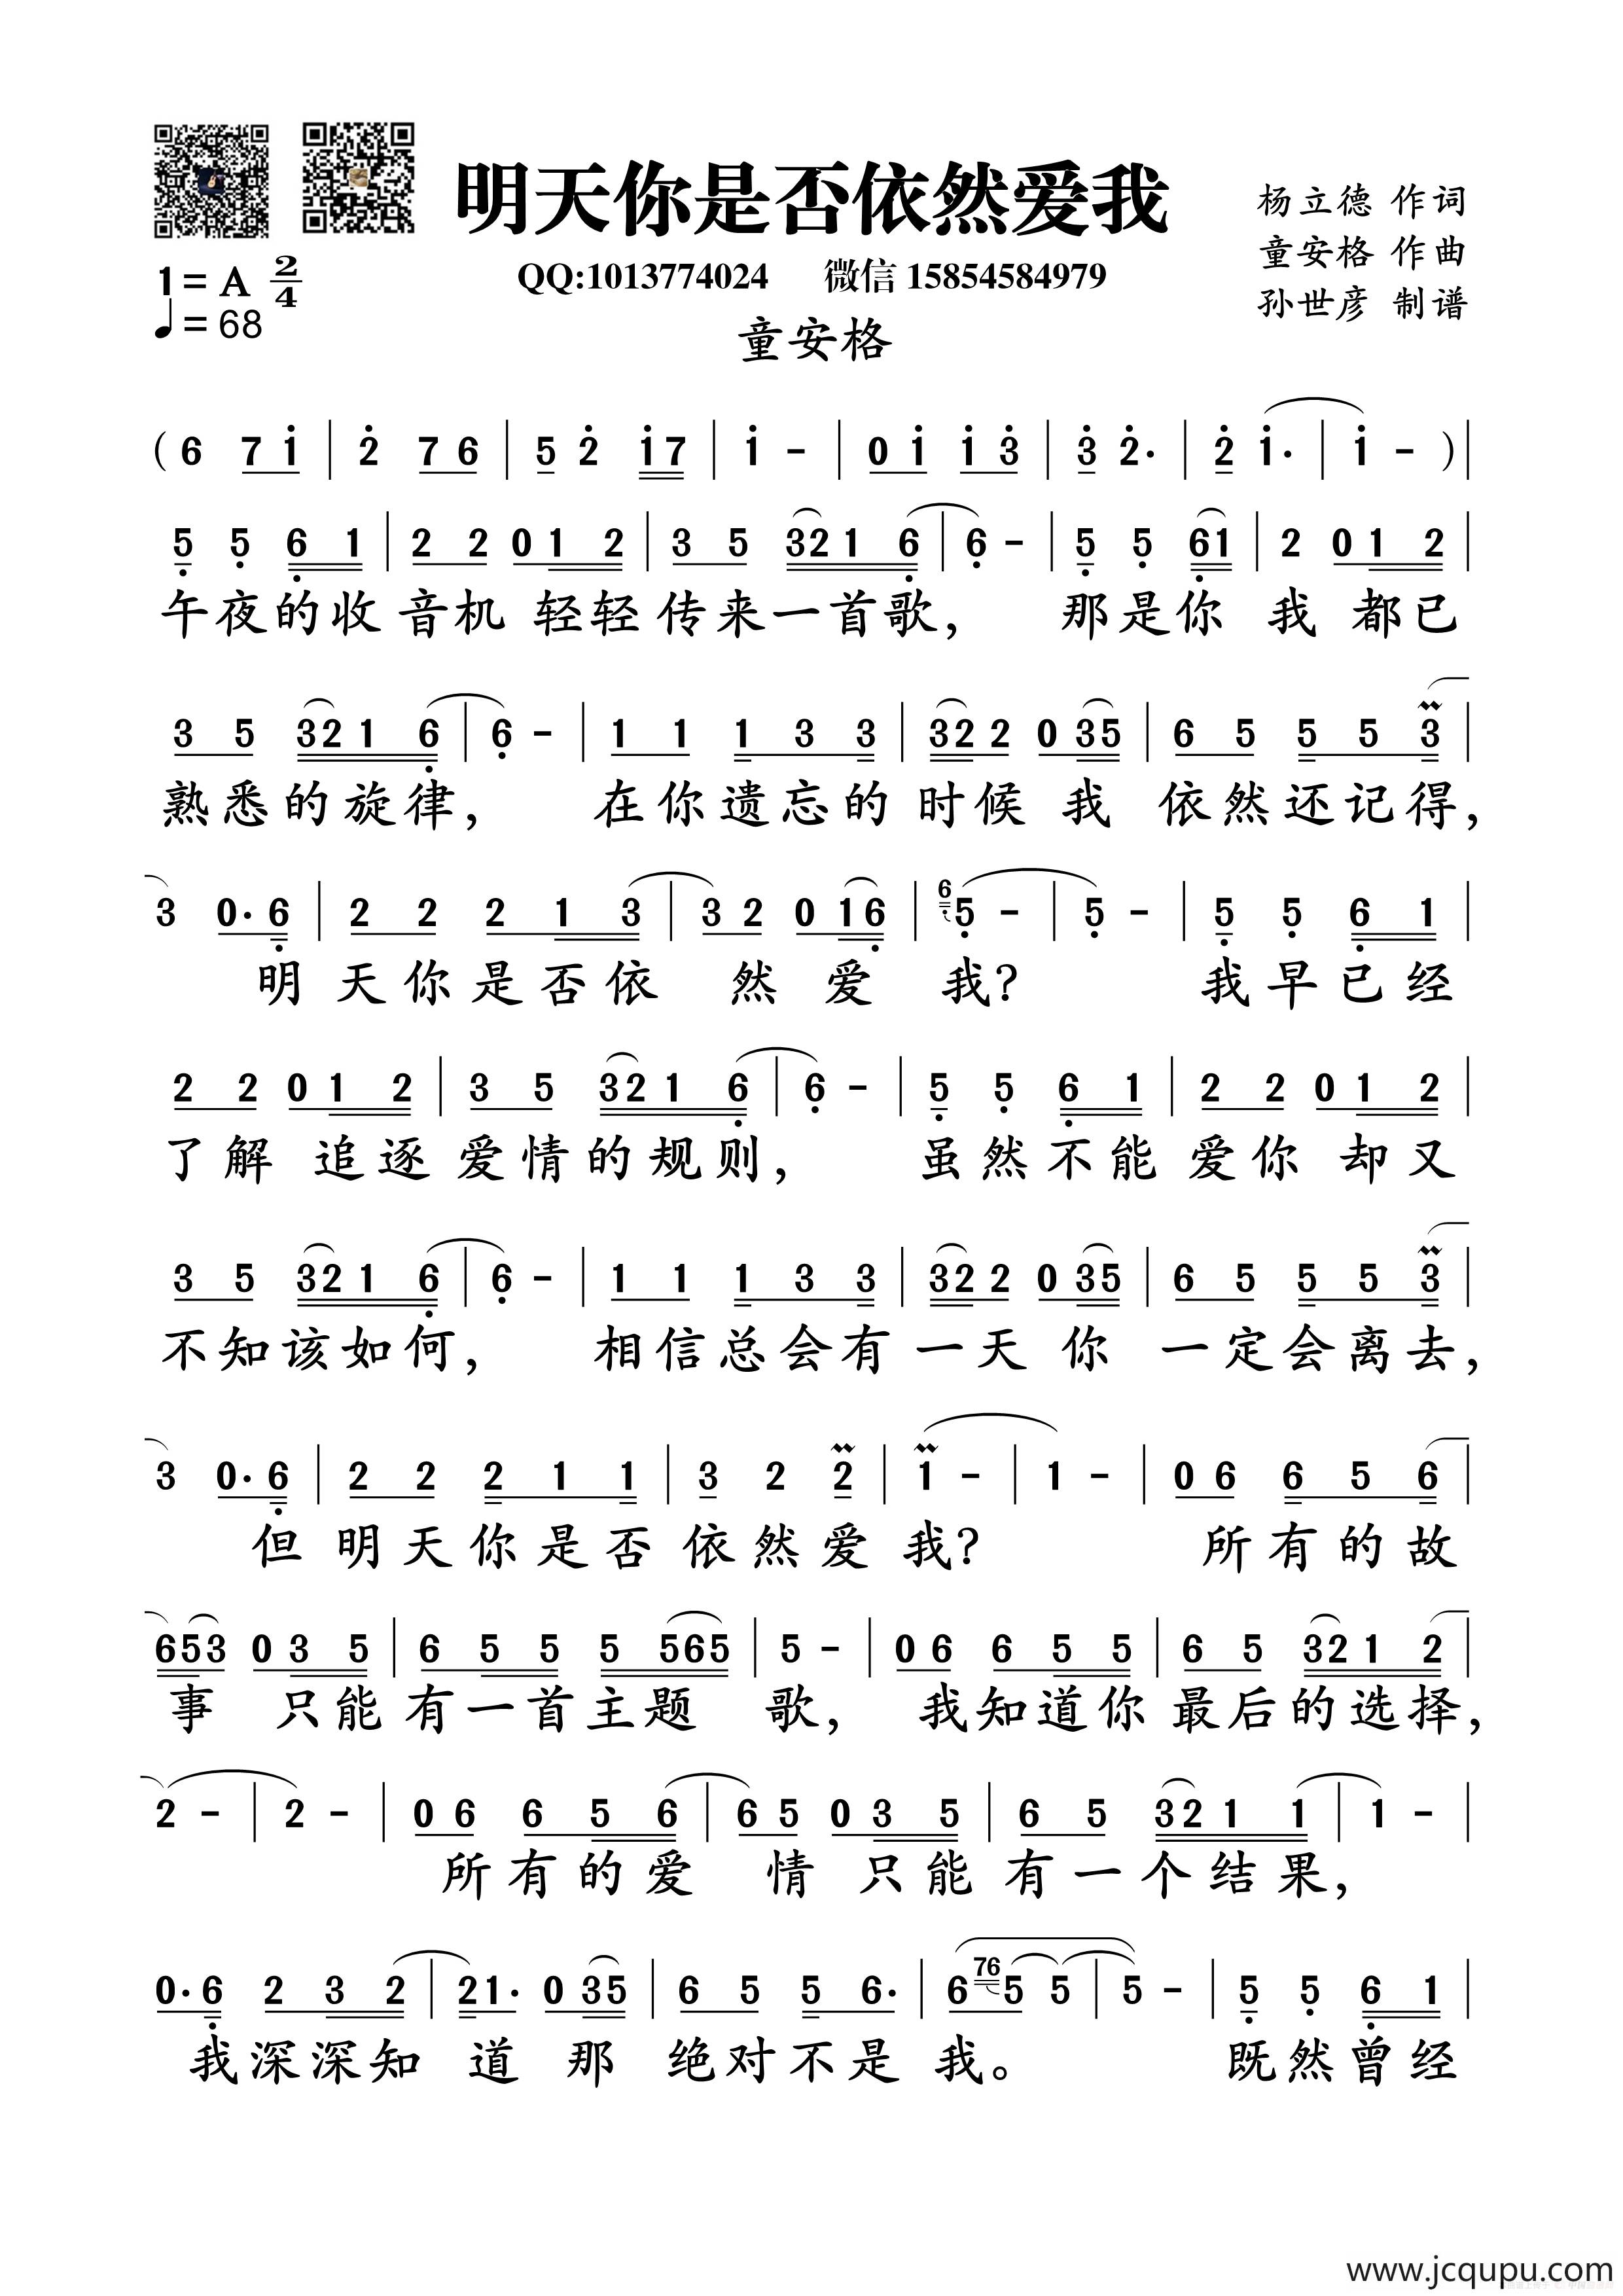 明天你是否依然爱我
杨立德 作词
童安格 作曲
孙世彦 制谱
QQ:1013774024 微信 15854584979
1=A 2/4
♩=68
童安格
( 6 7 1̇ | 2̇ 7 6 | 5 2̇ 1̇ 7 | 1̇ - | 0 1̇ 1̇ 3̇ | 3̇ 2̇· | 2̇ 1̇· | 1̇ - ) |
5̣ 5̣ 6̣ 1 | 2 2 0 1 2 | 3 5 3 2 1 6̣ | 6̣ - | 5̣ 5̣ 6̣ 1 | 2 0 1 2 |
午夜的收音机 轻轻传来一首歌, 那是你 我 都已
3 5 3 2 1 6̣ | 6̣ - | 1 1 1 3 3 | 3 2 2 0 3 5 | 6 5 5 5 3 |
熟悉的旋律, 在你遗忘的时候 我 依然还记得,
3 0· 6̣ | 2 2 2 1 3 | 3 2 0 1 6̣ | 6̣ 5̣ - | 5̣ - | 5̣ 5̣ 6̣ 1 |
明 天你是否依 然 爱 我? 我早已经
2 2 0 1 2 | 3 5 3 2 1 6̣ | 6̣ - | 5̣ 5̣ 6̣ 1 | 2 2 0 1 2 |
了解 追逐爱情的规则, 虽然不能爱你 却又
3 5 3 2 1 6̣ | 6̣ - | 1 1 1 3 3 | 3 2 2 0 3 5 | 6 5 5 5 3 |
不知该如何, 相信总会有一天 你 一定会离去,
3 0· 6̣ | 2 2 2 1 1 | 3 2 2 | 1 - | 1 - | 0 6 6 5 6 |
但 明天你是否 依然爱 我? 所有的故
6 5 3 0 3 5 | 6 5 5 5 5 6 5 | 5 - | 0 6 6 5 5 | 6 5 3 2 1 2 |
事 只能有一首主题 歌, 我知道你最后的选择,
2 - | 2 - | 0 6 6 5 6 | 6 5 0 3 5 | 6 5 3 2 1 1 | 1 - |
所有的爱 情 只能有一个结果,
0· 6̣ 2 3 2 | 2 1· 0 3 5 | 6 5 5 6· | 6 7 6 5 5 | 5 - | 5̣ 5̣ 6̣ 1 |
我深深知 道 那 绝对不是 我。 既然曾经
www.jcqupu.com